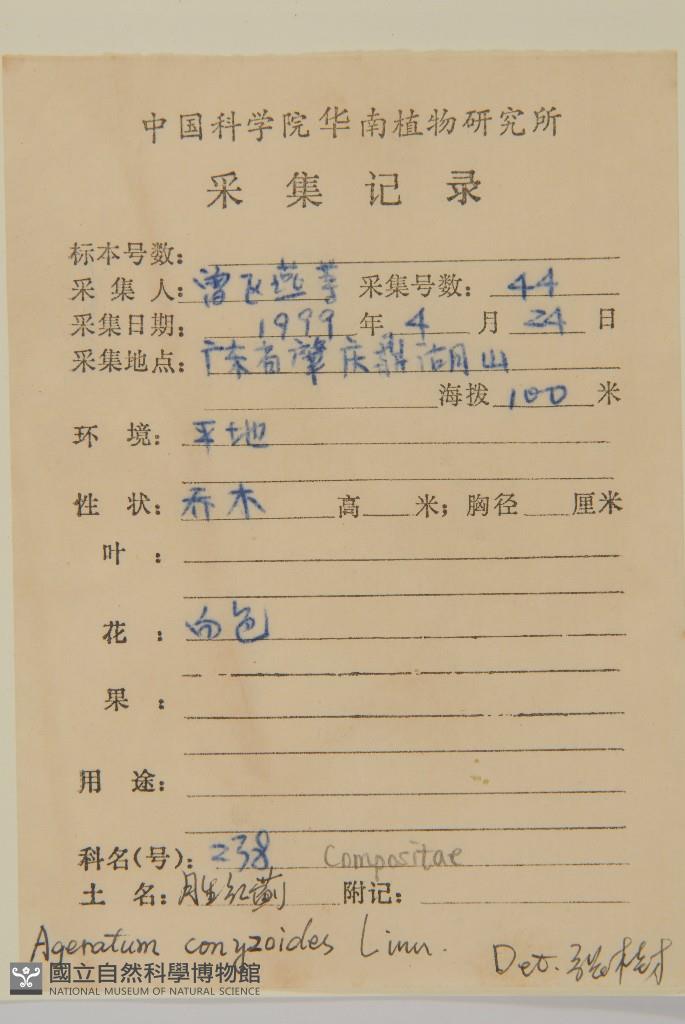 中国科学院华南植物研究所
采集记录
标本号数：
采集人：曾飞燕等 采集号数：44
采集日期：1999年4月24日
采集地点：广东省肇庆鼎湖山
海拨100米
环境：平地
性状：乔木 高 米；胸径 厘米
叶：
花：白色
果：
用途：
科名(号)：238 Compositae
土名：胜红蓟 附记：
Ageratum conyzoides Linn.
Det.
國立自然科學博物館
NATIONAL MUSEUM OF NATURAL SCIENCE